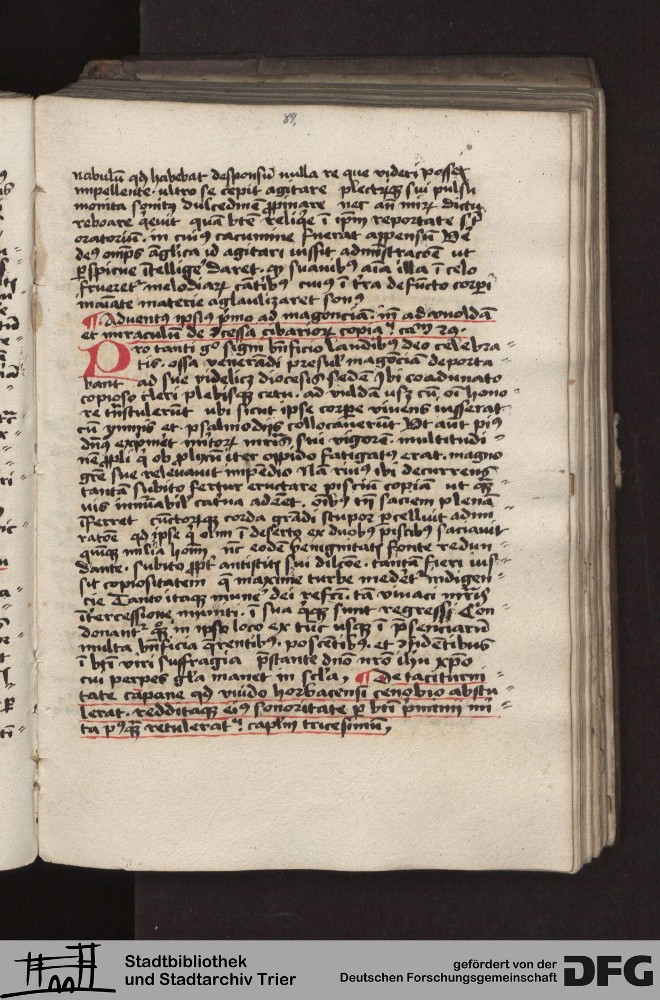 89
nabulū qd habebat desponsiū nulla re que videri posset
impellente. ultro se cepit agitare plectrqȝ sui pulsu
monita sonitꝯ dulcedinē ꝓpinare nec aū mirū dictu
reboare qeuit quā btē reliqe ī ipm reportate sūt
oratoriū. in cuiꝯ cacumine fuerat appensū
deꝯ omps āglica id agitari iussit admistracōe ut
ꝑspicue ītellige daret. qd suauibꝯ aīa illa ī celo
frueret melodiaꝝ cātibꝯ cuiꝯ ī t̄ra defūcto corpi
inaīate materie aglaulizaret sonꝯ
¶ Aduentꝯ ipsiꝯ pmo ad magonciā. in ad vuoldā
et miraculū de īcessa cibarioꝝ copia. ca 29.
Pro tanti go signi bnficio laudibꝯ deo celebra
tis. ossa veneradi presul magōciā deporta
bant ad sue videlicȝ diocesis sedē ibi coadunato
copioso cleri plebisqȝ cetu. ad vuldā usqȝ cū oī hono
re tnstulerūt ubi sicut ipse corpe viuens iusserat
cū ymnis et psalmodiis collocauerūt Ut aut piꝯ
dnꝯ exprimet mītoꝝ mris sui vigorē. multitudi
nē ppli q ob plixū iter oppido fatigatꝯ erat. magno
gre sue releuauit impendio Nā riuꝯ ibi decurrens
tantā subito fertur eructare pisciū copiā ut qȝ
uis innuabil catua adeēt. oībꝯ tn saciem plenā
īferret cūctoꝝqȝ corda grādi stupor pcelluit admi
ratōe qd ipse q olim ī deserto ex duobꝯ piscibꝯ saciauit
quinqȝ milia hoīm, nc eodē benignitatꝭ fonte redun
dante. subito ꝓpt antistitꝭ sui dilcōe. tantā fieri ius
sit copiositatem q maxime turbe medet indigen
cie Tanto itaqȝ mune dei refcti. tā viuaci mris
ītercessione muniti. ī sua qqȝ sunt regressi Con
donant qȝ in ipso loco ex tūc usqȝ ī psenciarū
multa bnficia qrentibꝯ. poscētibꝯ. et ꝯfidentibus
ī bti viri suffragia pstante dno nro ihu xpo
cui perpes gla manet in scla, ¶ De taciturni
tate cāpane qd viuido horbacensi cenobio abstu
lerat. redditaqȝ eiꝯ sonoritate p bti pmenii mi
ta pꝯqȝ retulerat. caplm tricesimū,
Stadtbibliothek
und Stadtarchiv Trier
gefördert von der
Deutschen Forschungsgemeinschaft
DFG